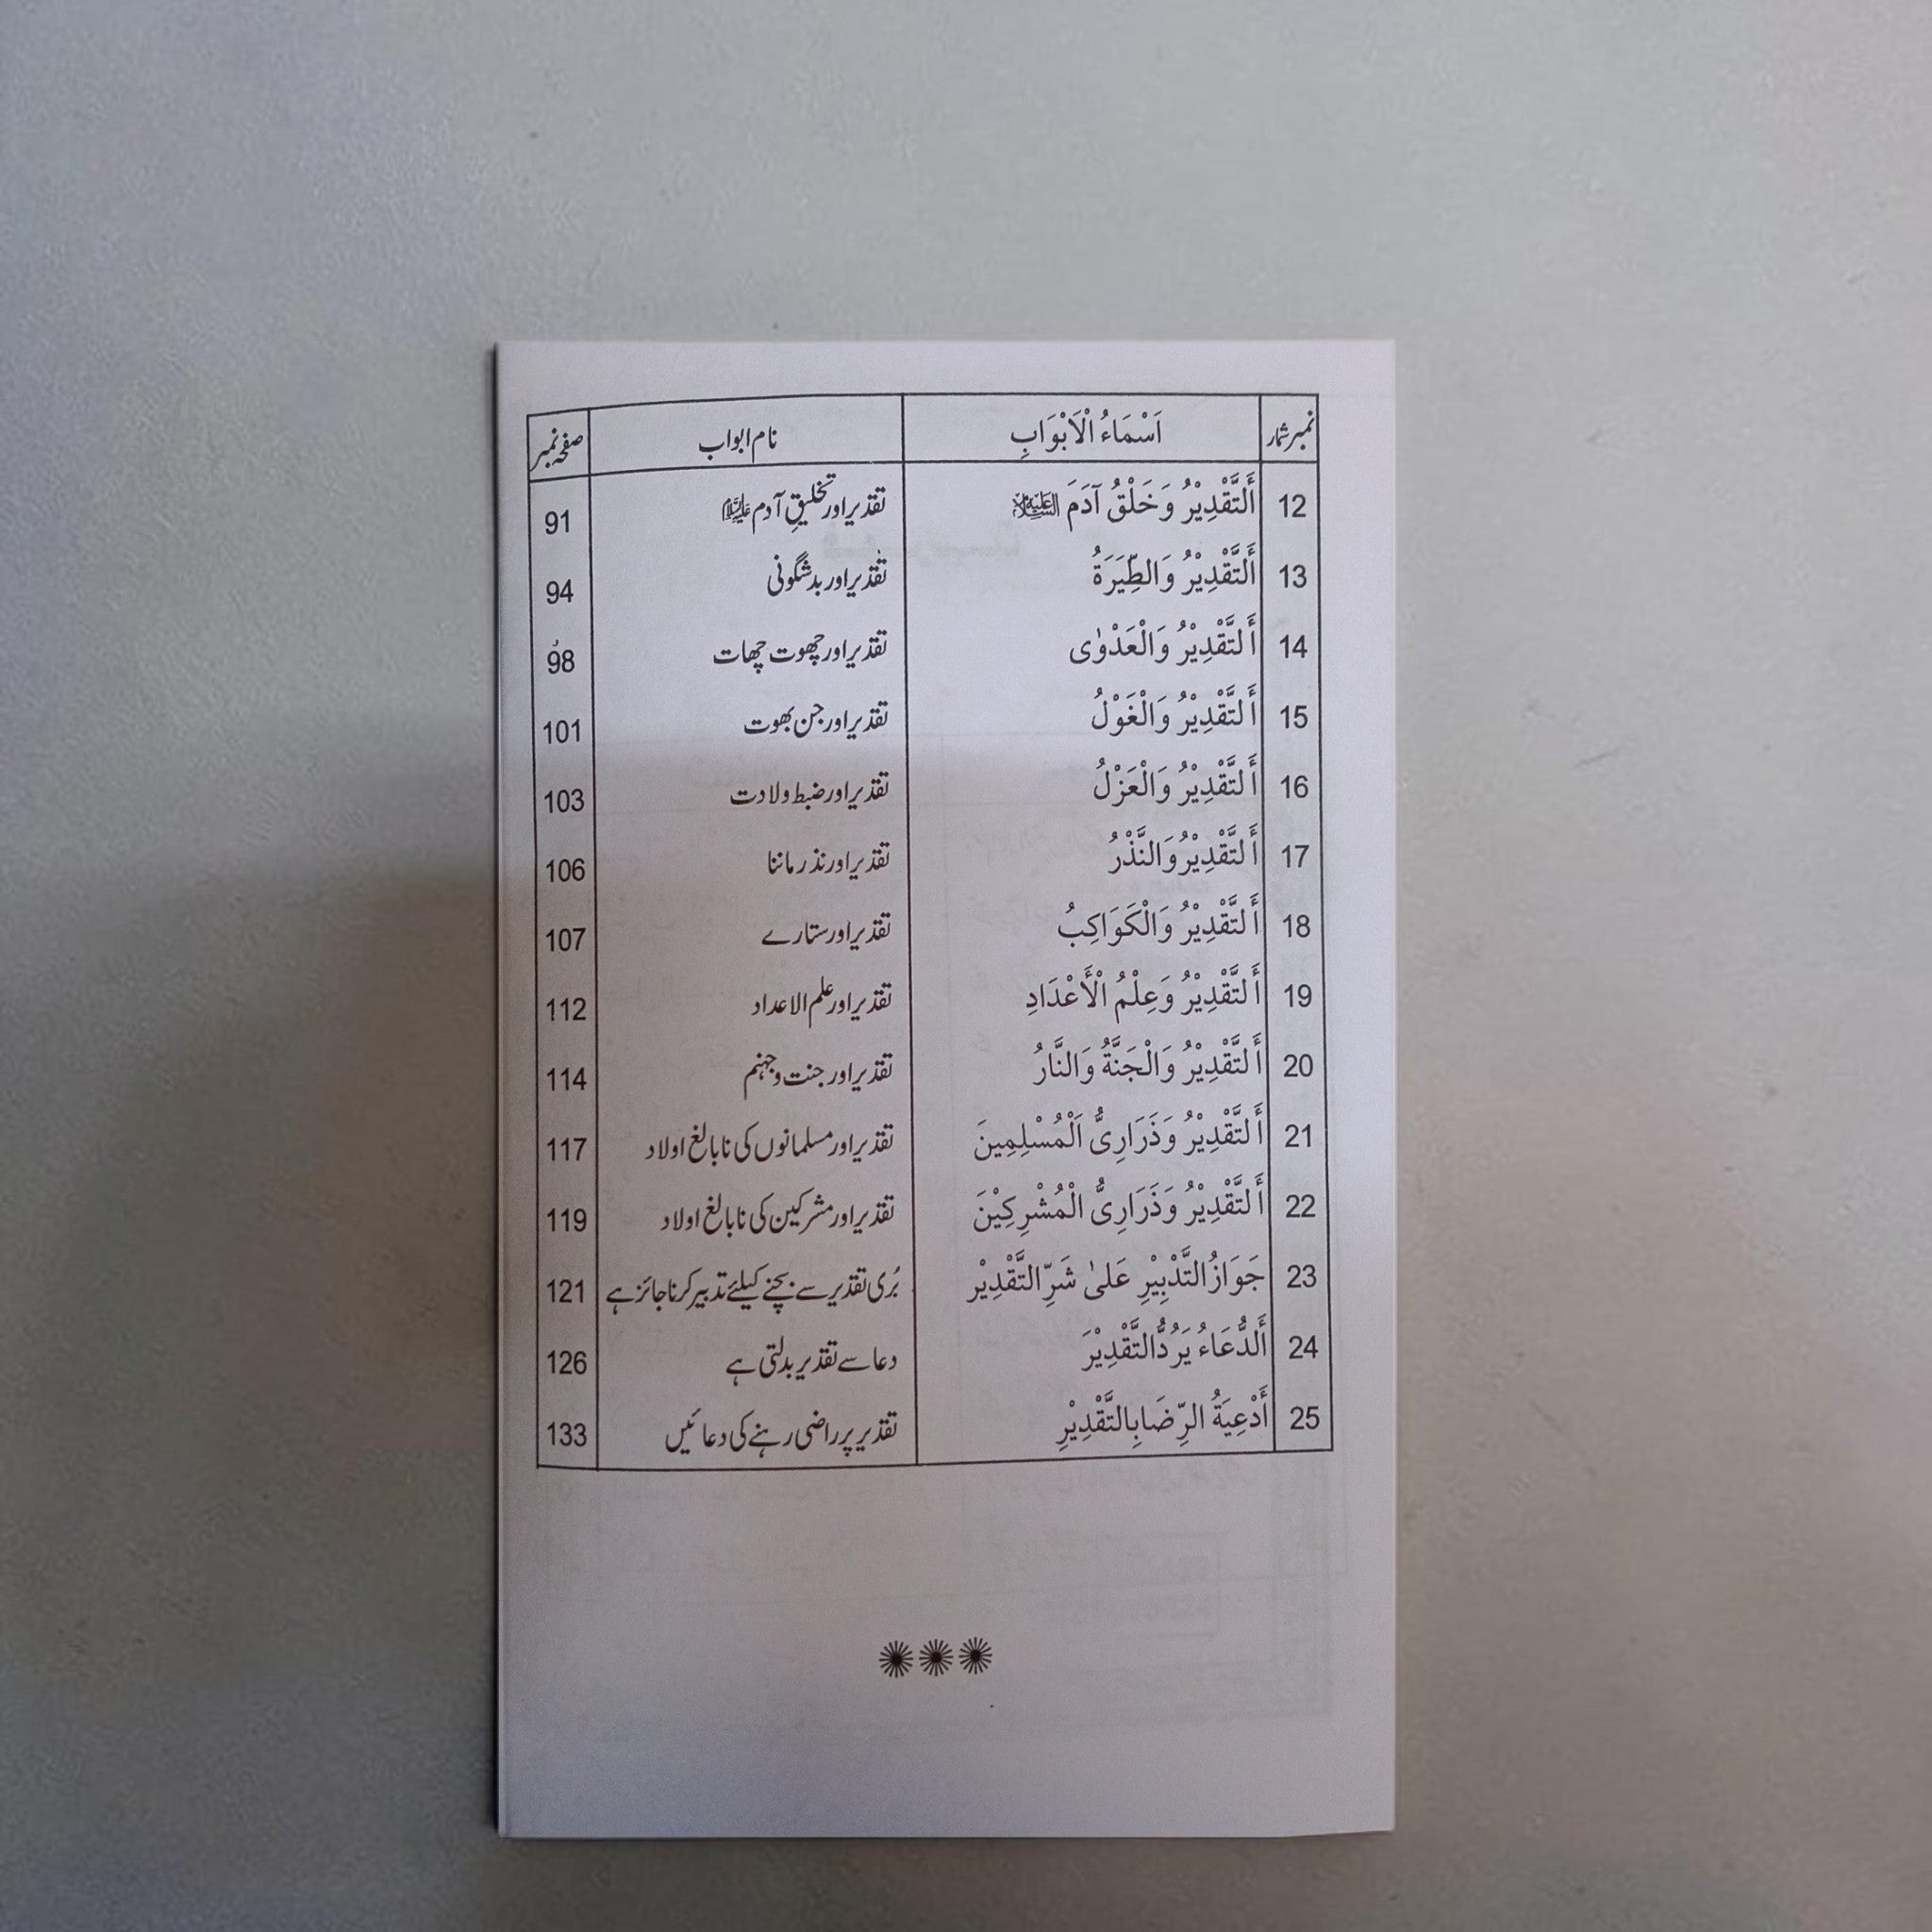 نمبر شمار اَسْمَاءُ الْاَبْوَابِ نام ابواب صفحہ نمبر
12 أَلتَّقْدِيْرُ وَخَلْقُ آدَمَ عَلَيْهِ السَّلَام تقدیر اور تخلیقِ آدم علیہ السلام 91
13 أَلتَّقْدِيْرُ وَالطِّيَرَةُ تقدیر اور بدشگونی 94
14 أَلتَّقْدِيْرُ وَالْعَدْوٰى تقدیر اور چھوت چھات 98
15 أَلتَّقْدِيْرُ وَالْغَوْلُ تقدیر اور جن بھوت 101
16 أَلتَّقْدِيْرُ وَالْعَزْلُ تقدیر اور ضبط ولادت 103
17 أَلتَّقْدِيْرُ وَالنَّذْرُ تقدیر اور نذر ماننا 106
18 أَلتَّقْدِيْرُ وَالْكَوَاكِبُ تقدیر اور ستارے 107
19 أَلتَّقْدِيْرُ وَعِلْمُ الْأَعْدَادِ تقدیر اور علم الاعداد 112
20 أَلتَّقْدِيْرُ وَالْجَنَّةُ وَالنَّارُ تقدیر اور جنت و جہنم 114
21 أَلتَّقْدِيْرُ وَذَرَارِىُّ اَلْمُسْلِمِينَ تقدیر اور مسلمانوں کی نابالغ اولاد 117
22 أَلتَّقْدِيْرُ وَذَرَارِىُّ الْمُشْرِكِيْنَ تقدیر اور مشرکین کی نابالغ اولاد 119
23 جَوَازُ التَّدْبِيْرِ عَلىٰ شَرِّ التَّقْدِيْر بُری تقدیر سے بچنے کیلئے تدبیر کرنا جائز ہے 121
24 أَلدُّعَاءُ يَرُدُّ التَّقْدِيْرَ دعا سے تقدیر بدلتی ہے 126
25 أَدْعِيَةُ الرِّضَا بِالتَّقْدِيْرِ تقدیر پر راضی رہنے کی دعائیں 133